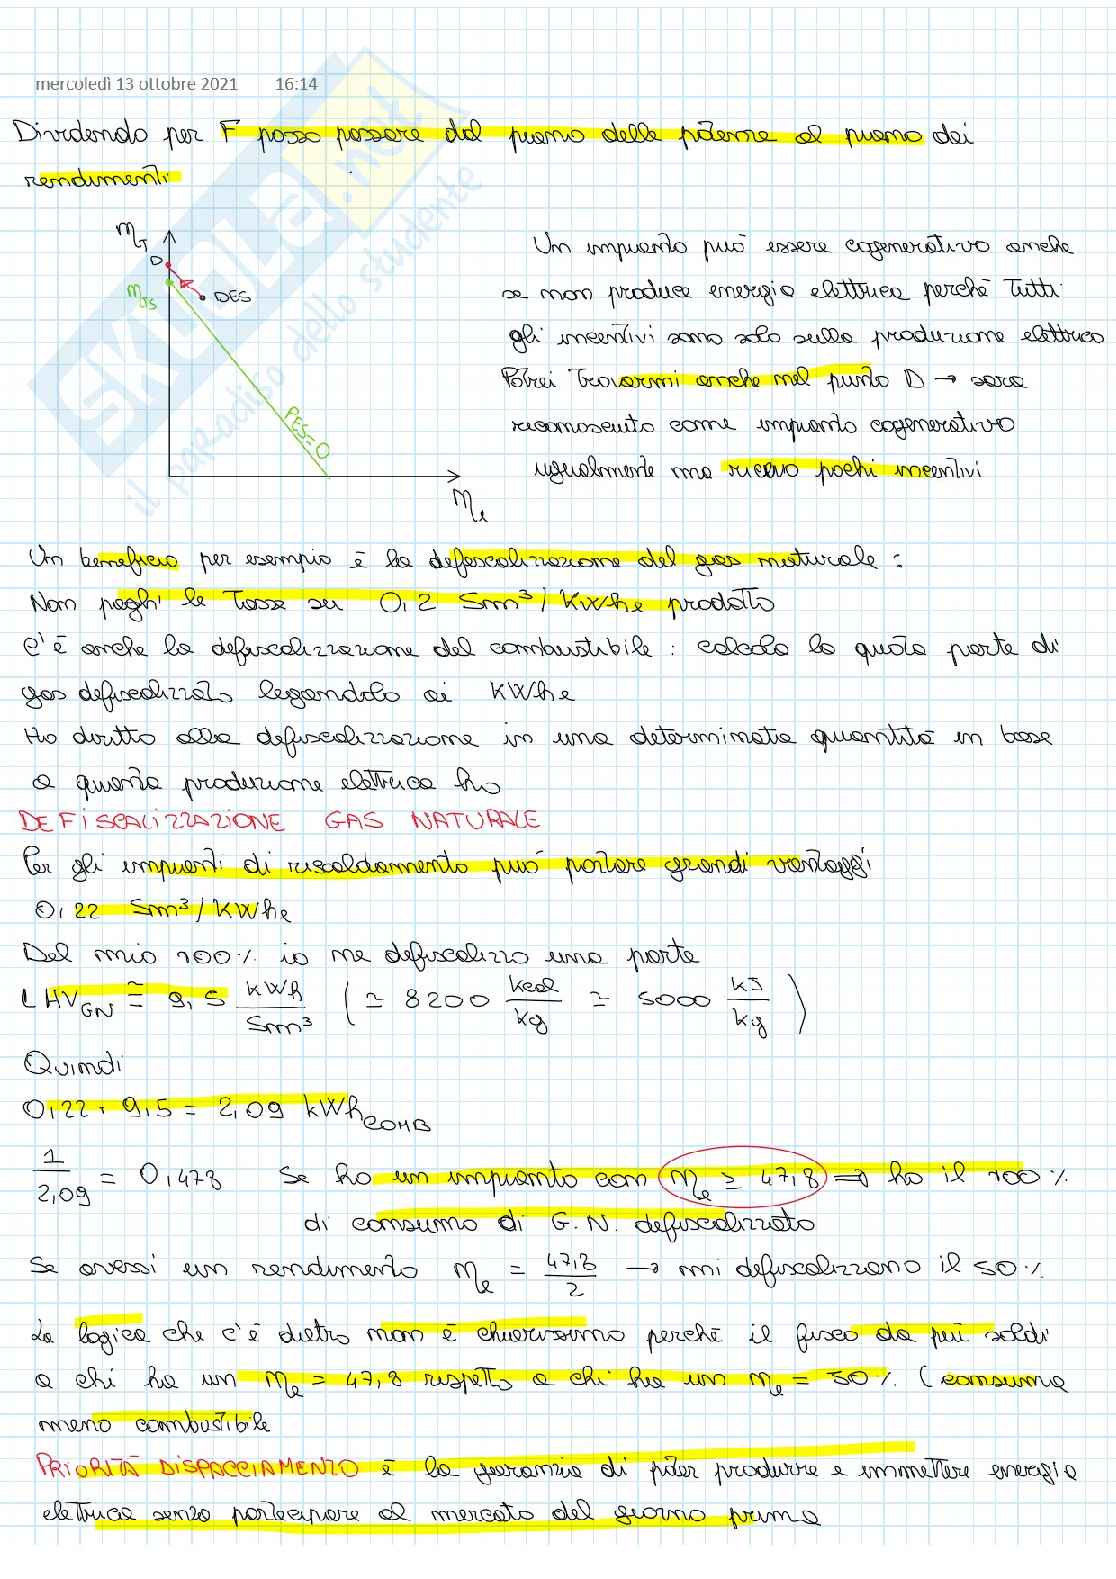 mercoledì 13 ottobre 2021 16:14
Dividendo per F posso passare dal piano delle potenze al piano dei
rendimenti
ηT
D
ηTS
DES
PES=0
ηe
Un impianto può essere cogenerativo anche
se non produce energia elettrica perché tutti
gli incentivi sono solo sulla produzione elettrica
Potrei trovarmi anche nel punto D → sarà
riconosciuto come impianto cogenerativo
ugualmente ma ricevo pochi incentivi
Un beneficio per esempio è la defiscalizzazione del gas naturale :
Non paghi le tasse su 0,2 Sm³/kWhe prodotto
C'è anche la defiscalizzazione del combustibile : calcolo la quota parte di
gas defiscalizzato legandolo ai KWhe
Ho diritto alla defiscalizzazione in una determinata quantità in base
a quanta produzione elettrica ho
DEFISCALIZZAZIONE GAS NATURALE
Per gli impianti di riscaldamento può portare grandi vantaggi
0,22 Sm³/KWhe
Del mio 100% io me defiscalizzo una parte
LHV GN ≃ 9,5 kWh/Sm³ (≃ 8200 kcal/kg ≃ 5000 kJ/kg)
Quindi
0,22 · 9,5 = 2,09 kWh COMB
1/2,09 = 0,478 Se ho un impianto con ηe ≥ 47,8 ⇒ ho il 100%
di consumo di G.N. defiscalizzato
Se avessi un rendimento ηe = 47,8/2 → mi defiscalizzano il 50%
La logica che c'è dietro non è chiarissima perché il fisco da più soldi
a chi ha un ηe = 47,8 rispetto a chi ha un ηe = 50% (consuma
meno combustibile
PRIORITÀ DISPACCIAMENTO è la garanzia di poter produrre e immettere energia
elettrica senza partecipare al mercato del giorno prima
SKUOLA.net
il paradiso dello studente